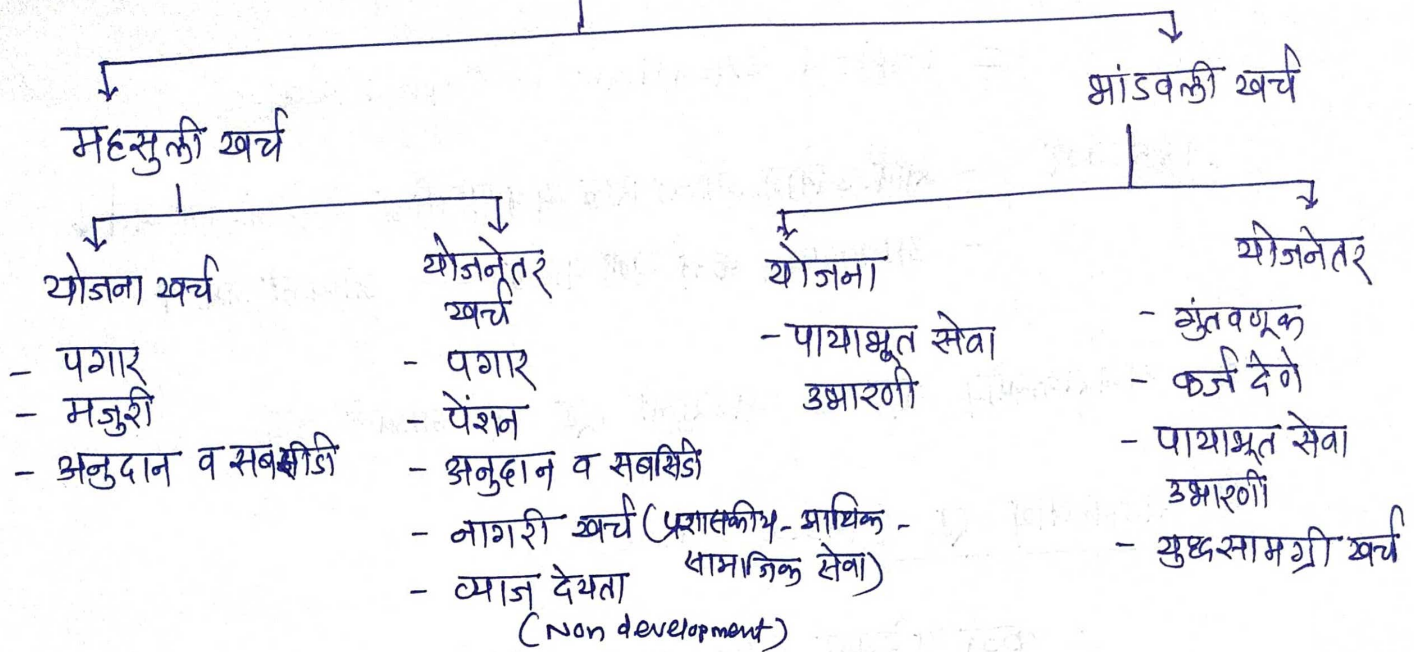 महसुली खर्च
भांडवली खर्च
योजना खर्च
- पगार
- मजुरी
- अनुदान व सबसीडी
योजनेतर
खर्च
- पगार
- पेंशन
- अनुदान व सबसिडी
- नागरी खर्च (प्रशासकीय - आर्थिक -
सामाजिक सेवा)
- व्याज देयता
(Non development)
योजना
- पायाभूत सेवा
उभारणी
योजनेतर
- गुंतवणूक
- कर्ज देणे
- पायाभूत सेवा
उभारणी
- युद्धसामग्री खर्च